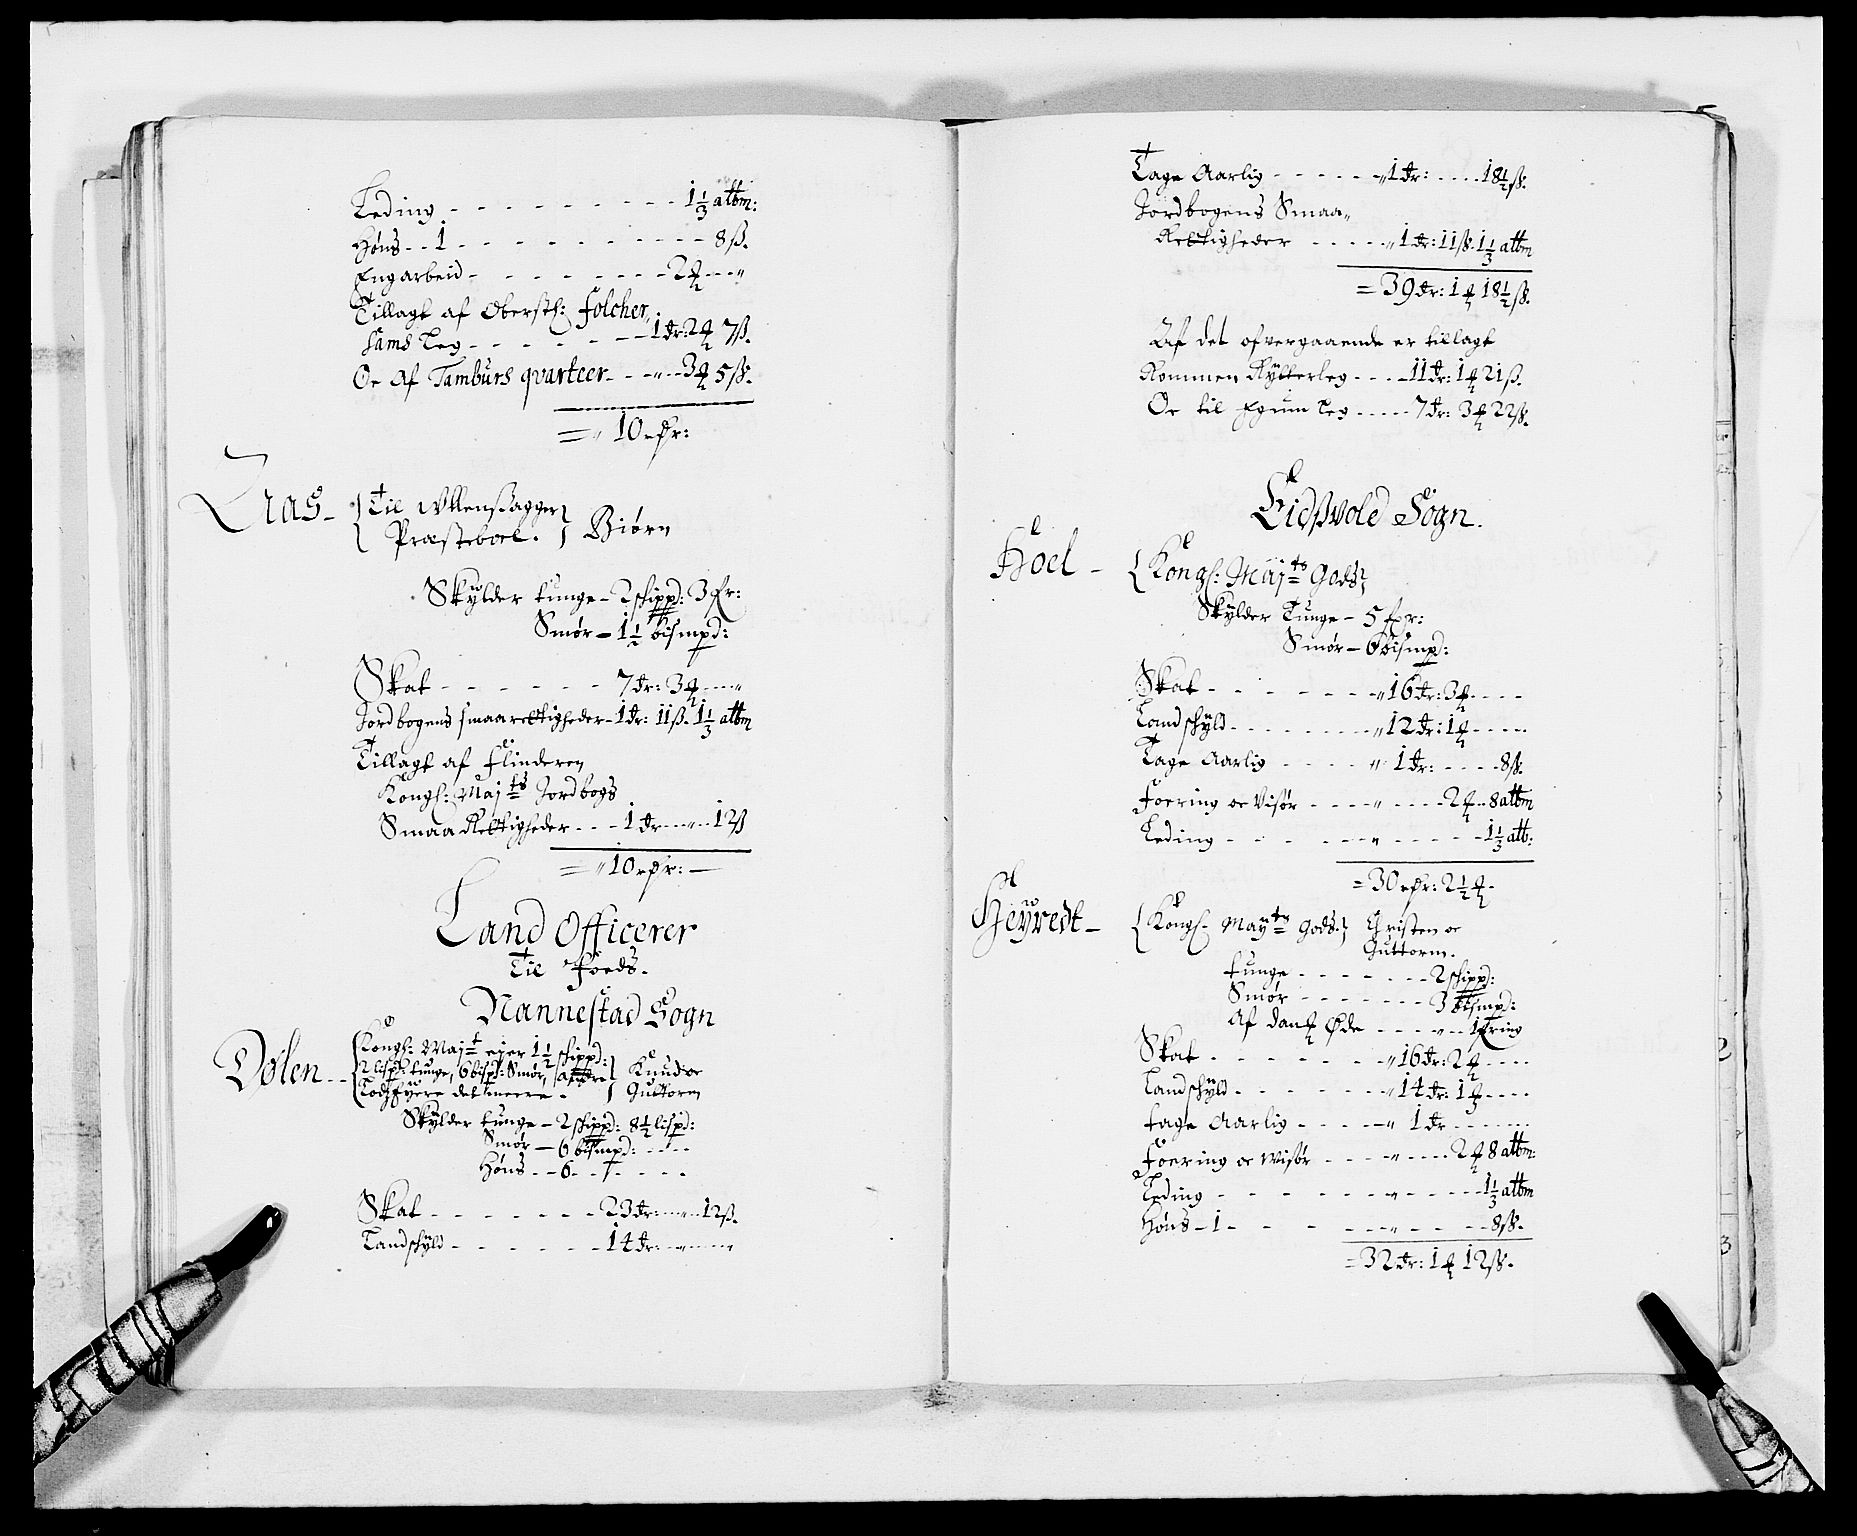 Leding - - - - - - - - - 1 1/3 albm:
Høns - - 1 - - - - - - - - - - 8 ß.
Engarbeid - - - - - - - - 2 ℔ - - "
Tillagt af Oberstl: folcher,
sams Leg - - - - - - 1 dr: 2 ℔ 7 ß.
Oc Af Tambürs qvarteer - - " - - 3 ℔ 5 ß.
= " 10 rdr:
Aas - { Til Ullensagger
Præsteboel. } Biørn
Skylder tunge - 2 schippd: 3 fr:
Smør - 1 1/2 bismpd:
Skat - - - - - - 7 dr: 3 ℔ - - "
Jordbogens smaarettigheder - 1 dr: 11 ß. 1 1/3 albm
Tillagt af Flinderen
Kongl: Maj ts Jordbogs
Smaa Rettigheder - - - 1 dr - - " - - 12 ß
= " 10 rdr: -
Land Officerer
Til Foeds.
Nannestad Sogn
Dølen - - { Kongl: Maj t eier 1 1/2 schippd:
2 lispd tunge, 6 bispd: Smør,
det meere. } Knud oc
Guttorm
Skylder tunge - 2 schippd: 8 1/2 lispd:
Smør - 6 bismpd: - - -
Høns - - 6 - - - - -
Skat - - - - - - - 23 dr: - - " - - 12 ß.
Landschyld - - - - - - 14 dr: - - " - -
Tage Aarlig - - - - - " 1 dr: - - - - 18 1/2 ß.
Jordbogens Smaa "
Rettigheder - - - - - " 1 dr: 11 ß. 1 1/3 albm
= 39 dr: 1 ℔ 18 1/2 ß.
Af det ofvergaaende er tillagt
Kommen Rytterleg - - - - 11 dr: 1 ℔ 21 ß.
Oc til Egum Leg - - - - - 7 dr: 3 ℔ 22 ß.
Eidßvold Sogn.
Hoel - { Kongl: Maj ts Gods }
Skylder Tunge - 5 fr:
Smør - 6 bismpd:
Skat - - - - - - - " 16 dr: 3 ℔ - - - -
Landschyld - - - - - - - - " 12 dr: 1 ℔ - - - - -
Tage Aarlig - - - - - " 1 dr: - - - - 8 ß.
Foering oc Visør - - - - " - - - - 2 ℔ - 8 albm
Leding - - - - - - - " - - - - - - 1 1/3 alb:
= 30 rdr: 2 1/2 ℔ -
Heyredt - { Kongl. May ts Gods. } Christen oc
Guttorm.
tunge - - - - - - - 2 schippd:
Smør - - - - - - - 3 bismpd:
Af Øde - - - - " - -
Skat - - - - - - - - " 16 dr: 2 ℔ - - - -
Landschyld - - - - - - - " 14 dr: 1 ℔ - - - -
tage Aarlig - - - - - " 1 dr - - - - - -
Foering oc Wisør - - - - " - - - - 2 ℔ 8 albm:
Leding - - - - - - - " - - - - - 1 1/3 albm
Høns - 1 - - - - - - " - - - - - 8 ß.
= 32 dr: 1 ℔ 12 ß.